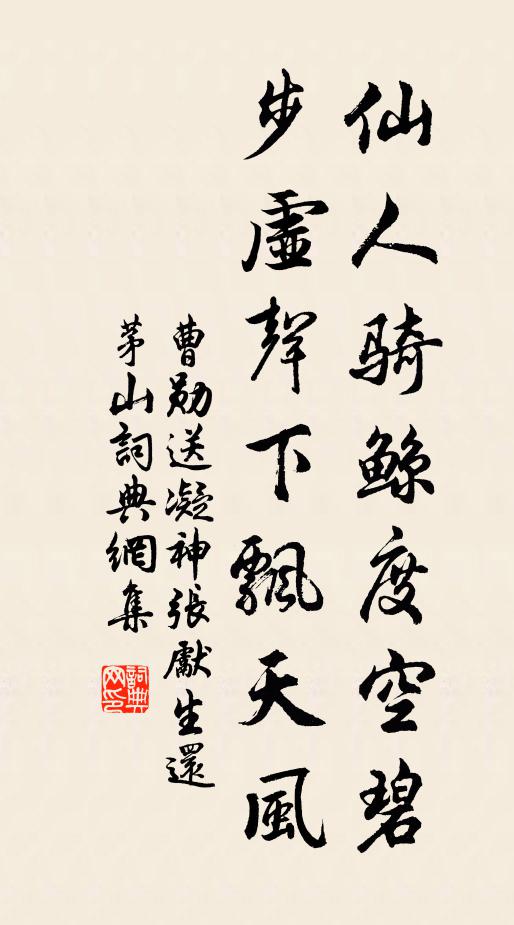 仙人骑鲸度空碧
步虛聲下飄天風
曹勋送凝神張獻生還
茅山詞典網集
詞典
网印